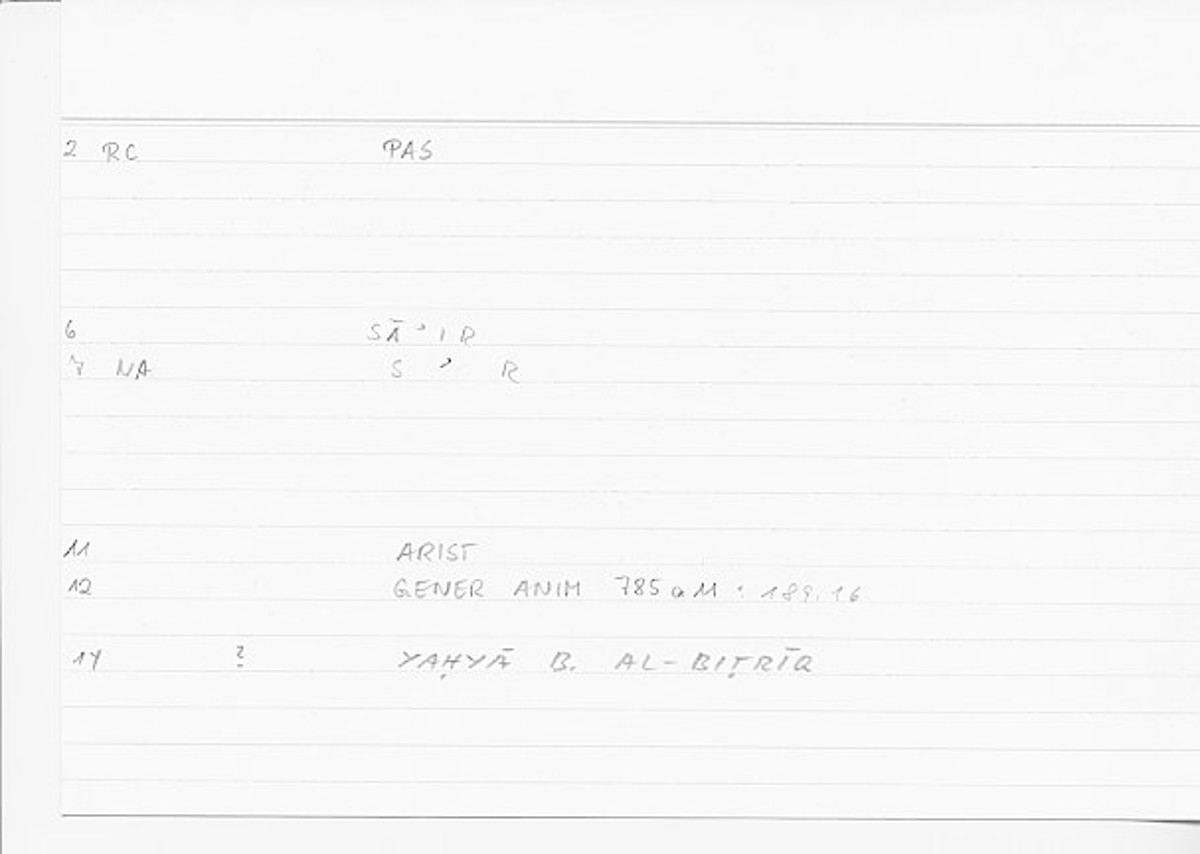 2 RC PAS
6 SĀʾIR
7 NA S ʾ R
11 ARIST
12 GENER ANIM 785a11 : 189.16
14 ? YAḤYĀ B. AL-BIṬRĪQ